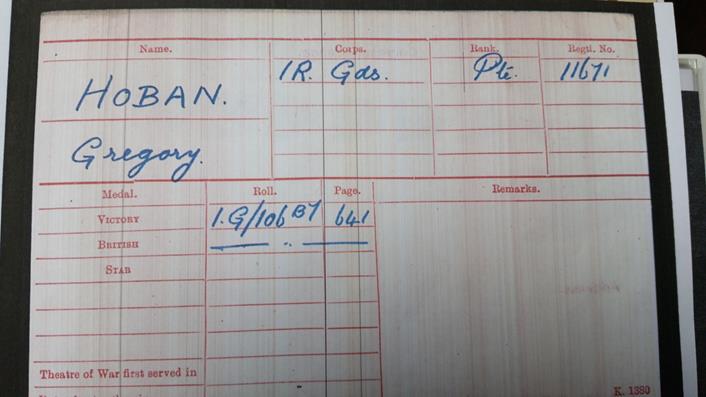 Name. Corps. Rank. Regtl. No.
HOBAN. IR. Gds. Pte. 11671
Gregory.
Medal. Roll. Page. Remarks.
VICTORY I.G/106 B7 641
BRITISH — " —
STAR
Theatre of War first served in
K. 1380